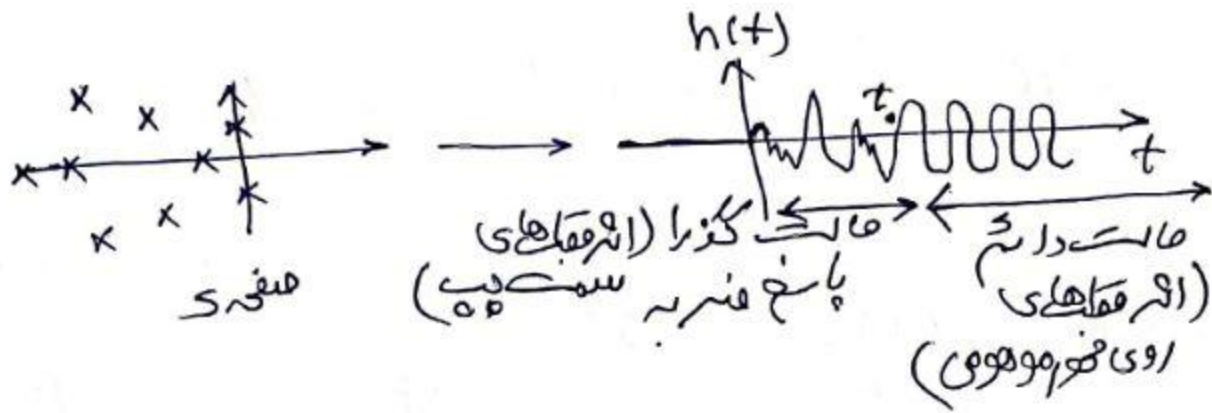 h(t)
t.
t
صفحه s
حالت گذرا (اثر قطب‌های
سمت چپ)
پاسخ ضربه
حالت دائم
(اثر قطب‌های
روی محور موهومی)